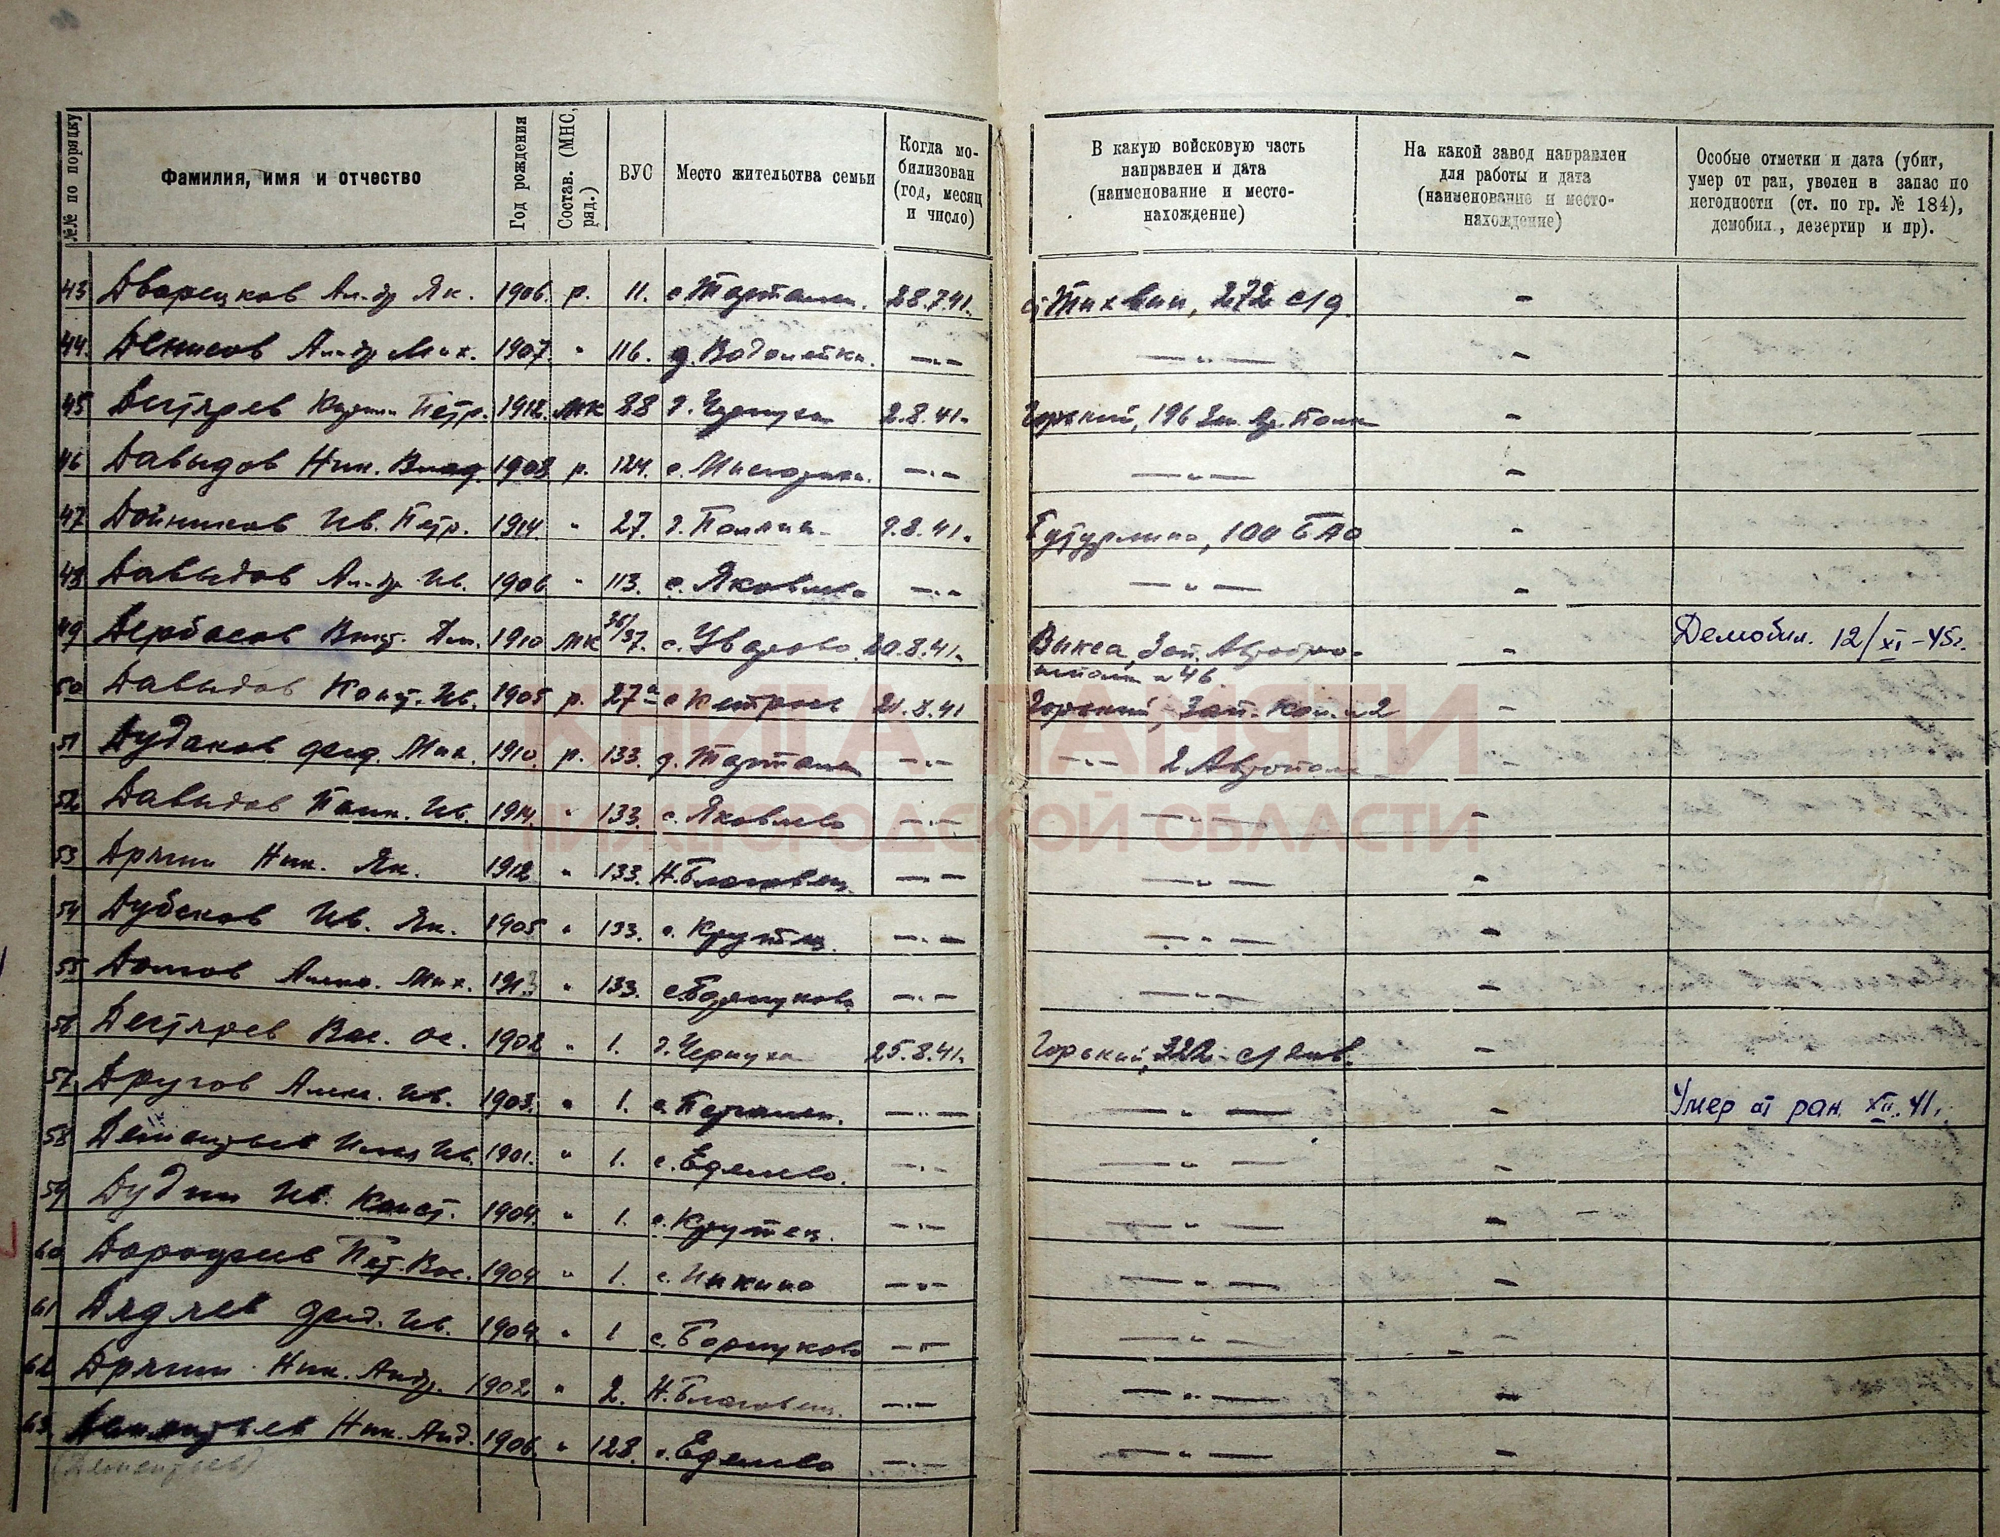 №№ по порядку
Фамилия, имя и отчество
Год рождения
Состав. (МНС, ряд.)
ВУС
Место жительства семьи
Когда мобилизован (год, месяц и число)
В какую войсковую часть направлен и дата (наименование и местонахождение)
На какой завод направлен для работы и дата (наименование и местонахождение)
Особые отметки и дата (убит, умер от ран, уволен в запас по негодности (ст. по гр. № 184), демобил., дезертир и пр).
43 Дворецков Ал-др Як. 1906. р. 11. 28.7.41. Тихвин, 272 с/д. -
44. Денисов Ал-др Мих. 1907. " 116. д. Водолейка. —"— —"— -
45 Дегтярев Петр. 1912. МК 88 2.8.41. Горький, 196 -
46 Давыдов Ник. Влад. 1908 р. 124. —"— —"— -
47 Дойников Ив. Петр. 1914. " 27. 9.8.41. Бутурлино, 100 БАО -
48 Давыдов Ал-др Ив. 1906 " 113. с. Яковлево —"— —"— -
49 Дербасов Викт. Дм. 1910 МК 36/37. с. Уварово 20.8.41. Выкса, Зап. - Демобил. 12/XI-45г.
50 Давыдов Конст. Ив. 1905 р. 27а 21.8.41 Горький, Зап. -
51 Дудаков Фед. Мих. 1910. р. 133. —"— —"— 2 Автополк -
52 Давыдов Ив. 1914. " 133. с. Яковлево —"— —"— -
53 Дрягин Ник. Як. 1912 " 133. Н. Благовещ. —"— —"— -
54 Ив. Як. 1905 " 133. с. Крутец. —"— —"— -
55 Долгов Мих. 1913 " 133. —"— —"— -
56 Дегтярев Вас. Ос. 1902 " 1. Чернуха 25.8.41. Горький, 322 с/див. -
57 Другов Алек. Ив. 1903. " 1. —"— —"— - Умер от ран. XII.41.
58 Дементьев Илья Ив. 1901. " 1. с. Еделево. —"— —"— -
59 Дудин Ив. Конст. 1904. " 1. с. Крутец. —"— —"— -
60 Дорофеев Пет. Вас. 1904 " 1. с. Инкино —"— —"— -
61 Дядяев Фед. Ив. 1904. " 1 с. Борнуково —"— —"— -
62 Дрягин Ник. Андр. 1902. " 2. Н. Благовещ. —"— —"— -
63. Дементьев Ник. Анд. 1906. " 128. с. Еделево —"— —"— -
(Дементьев)
КНИГА ПАМЯТИ
НИЖЕГОРОДСКОЙ ОБЛАСТИ